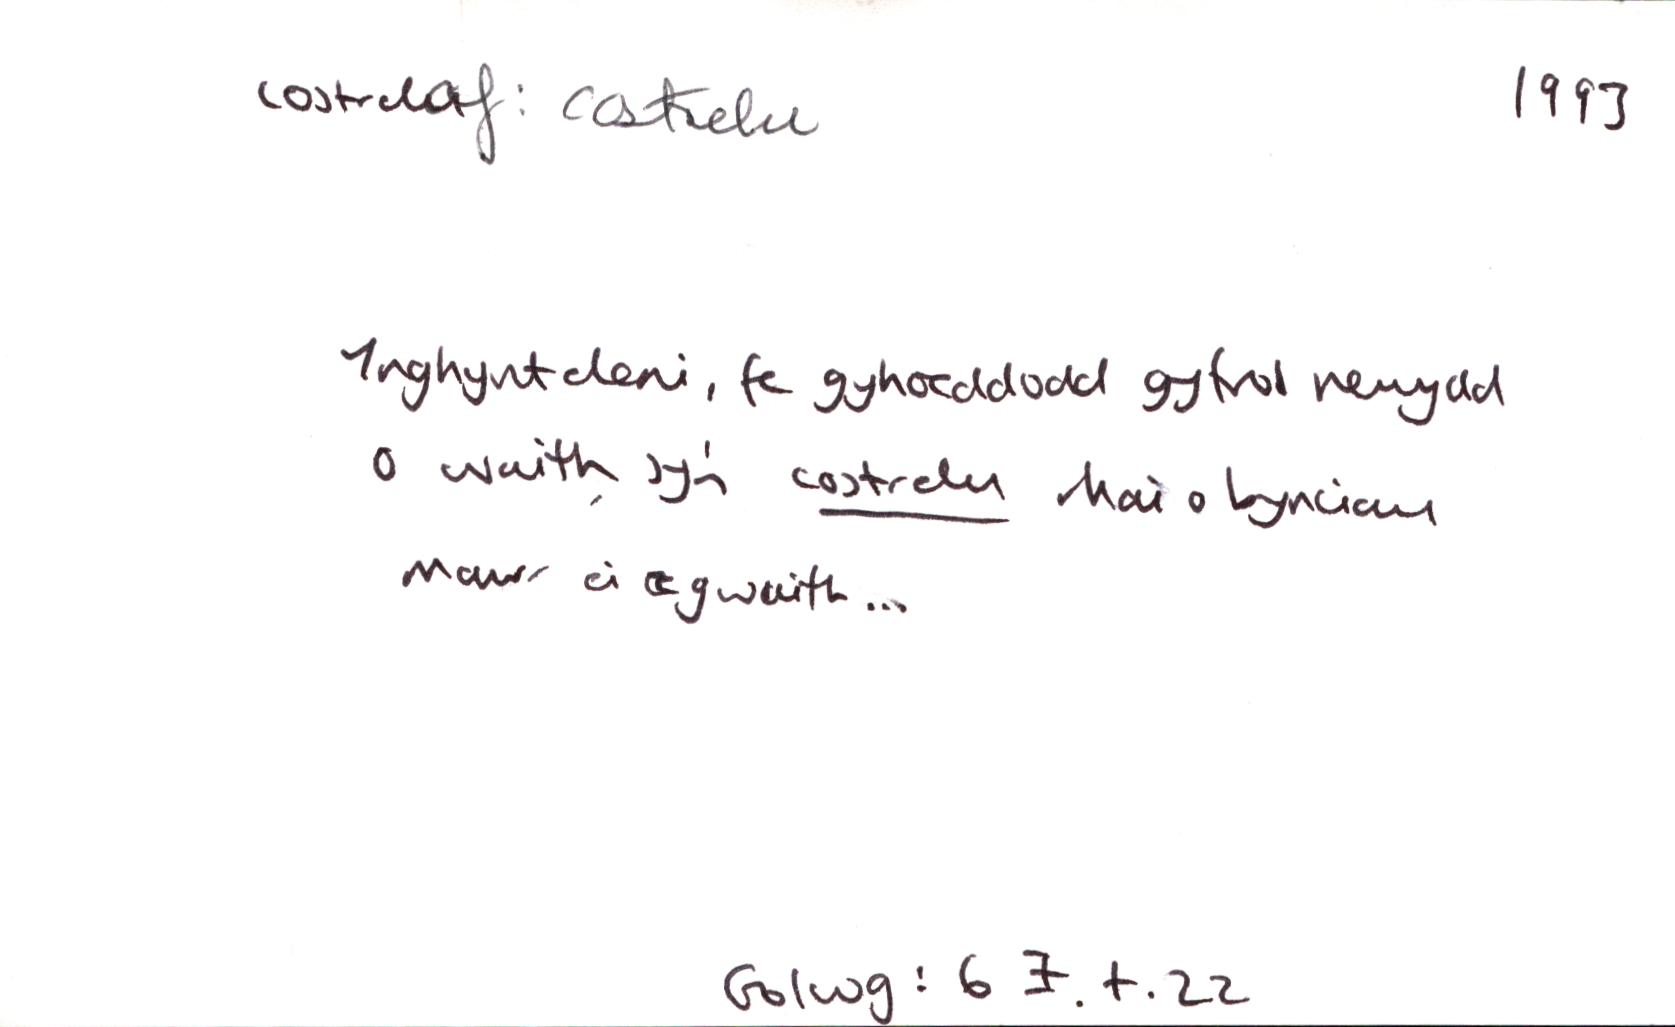 costrelaf: costrelu 1993
Ynghynt eleni, fe gyhoeddodd gyfrol newydd
o waith sy'n costrelu rhai o bynciau
mawr ei gwaith...
Golwg: 6 I. t. 22